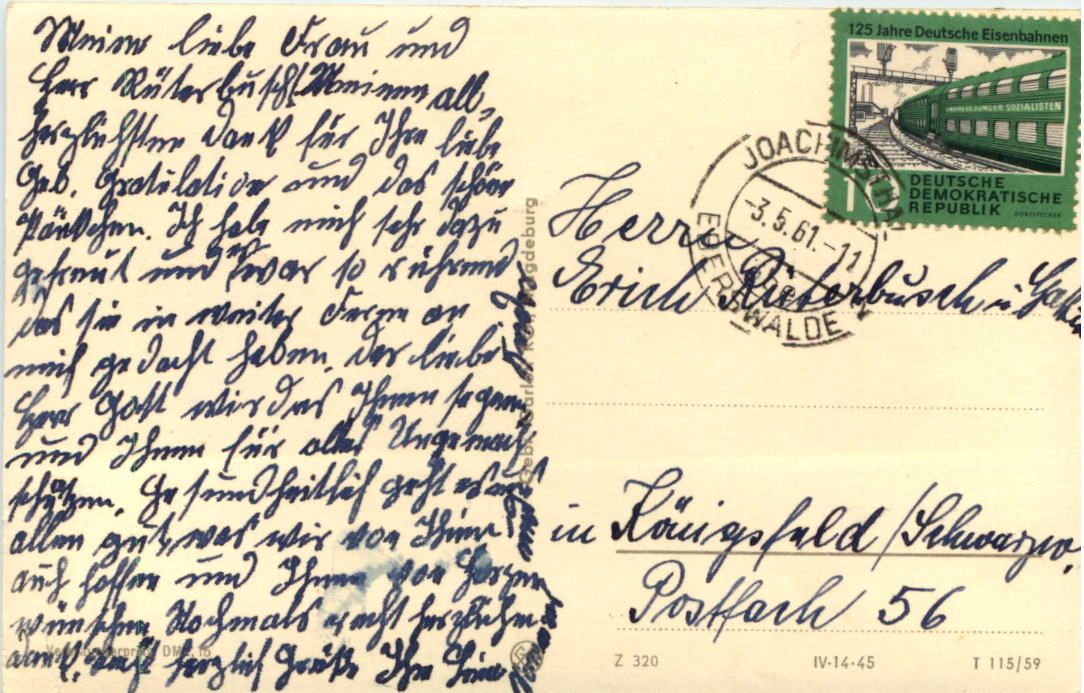 Meine liebe Frau und
Herr Rüterbusch! Meinen all,
herzlichsten Dank für Ihre liebe
Geb. Gratulation und das schöne
Päckchen. Ich habe mich sehr dazu
gefreut und es war so rührend
das sie in weiter Ferne an
mich gedacht haben. Der liebe
Herr Gott wird das Ihnen segnen
und Ihnen für alles Ungemach
schützen. Gesundheitlich geht es uns
allen gut, was wir von Ihnen
auch hoffen und Ihnen von Herzen
wünschen Nochmals recht herzlichen
Dank. herzlich Grüße Ihre
125 Jahre Deutsche Eisenbahnen
EXPRESS JUNGER SOZIALISTEN
DEUTSCHE
DEMOKRATISCHE
REPUBLIK
JOACHIMSTHAL
-3.5.61.-11
EBERSWALDE
Herrn
Erich Rüterbusch u. Gattin
in Königsfeld /Schwarzw.
Postfach 56
Magdeburg
DM 0,15
Z 320
IV-14-45
T 115/59